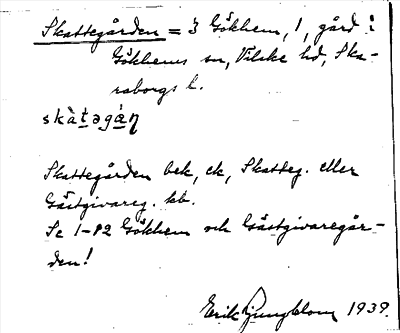 Skattegården = 3 Gökhem, 1, gård i
Gökhems sn, Vilske hd, Ska-
raborgs l.
skàtəgán
Skattegården bek, ek, Skatteg. eller
Gästgivareg. kb.
Se 1-82 Gökhem och Gästgivaregår-
den!
Erik Ljungblom 1939.